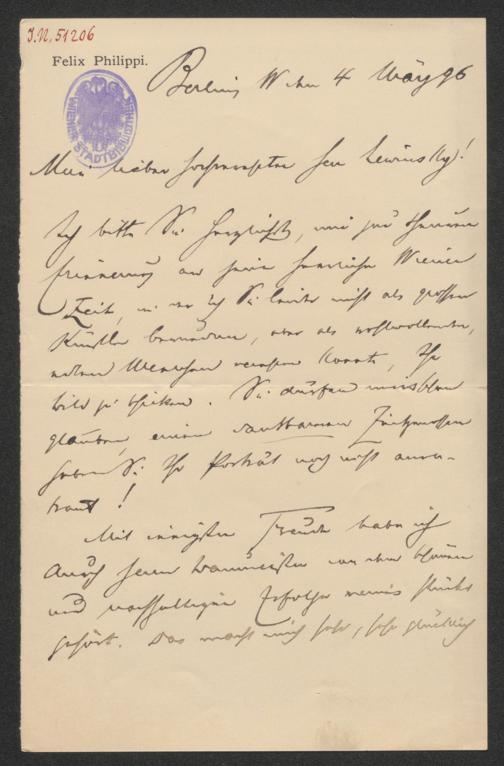 J.N. 51206
Felix Philippi.
WIENER STADTBIBLIOTHEK
Berlin W den 4 März 96
Mein lieber hochverehrter Herr Lewinsky!
Ich bitte Sie herzlichst, mir zur theuren
Erinnerung an jene herrliche Wiener
Zeit, in der ich Sie leider nicht als großen
Künstler bewundern, aber als wohlwollenden,
edlen Menschen verehren konnte, Ihr
Bild zu schicken. Sie dürfen mirs
glauben, einem dankbareren Zeitgenossen
haben Sie Ihr Porträt noch nicht anver-
traut!
Mit innigster Freude habe ich
durch Herrn von dem schönen
und nachhaltigen Erfolge meines Stücks
gehört. Das macht mich sehr, sehr glücklich